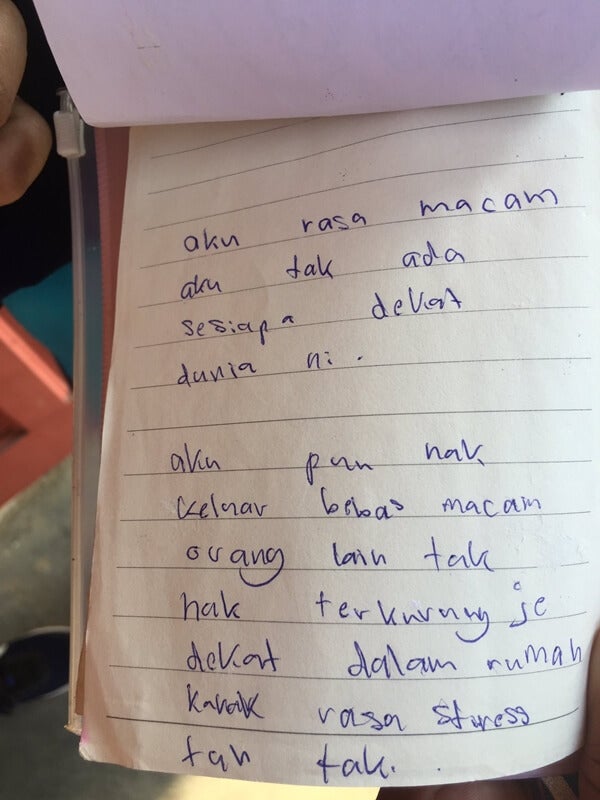 aku rasa macam
aku tak ada
sesiapa dekat
dunia ni.
aku pun nak
keluar bebas macam
orang lain tak
nak terkurung je
dekat dalam rumah
rasa stress
tah tak.